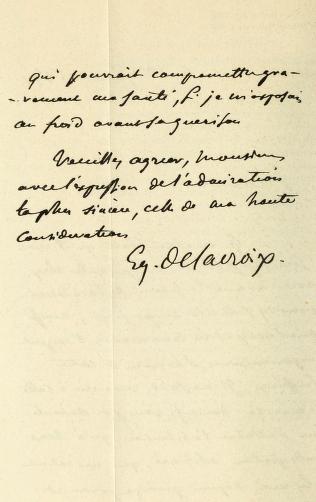 qui pourrait compromettre gra-
-vement ma santé, si je m'exposais
au froid avant sa guérison
Veuillez agréer, Monsieur
avec l'expression de l'admiration
la plus sincère, celle de ma haute
considération
Eug. Delacroix.